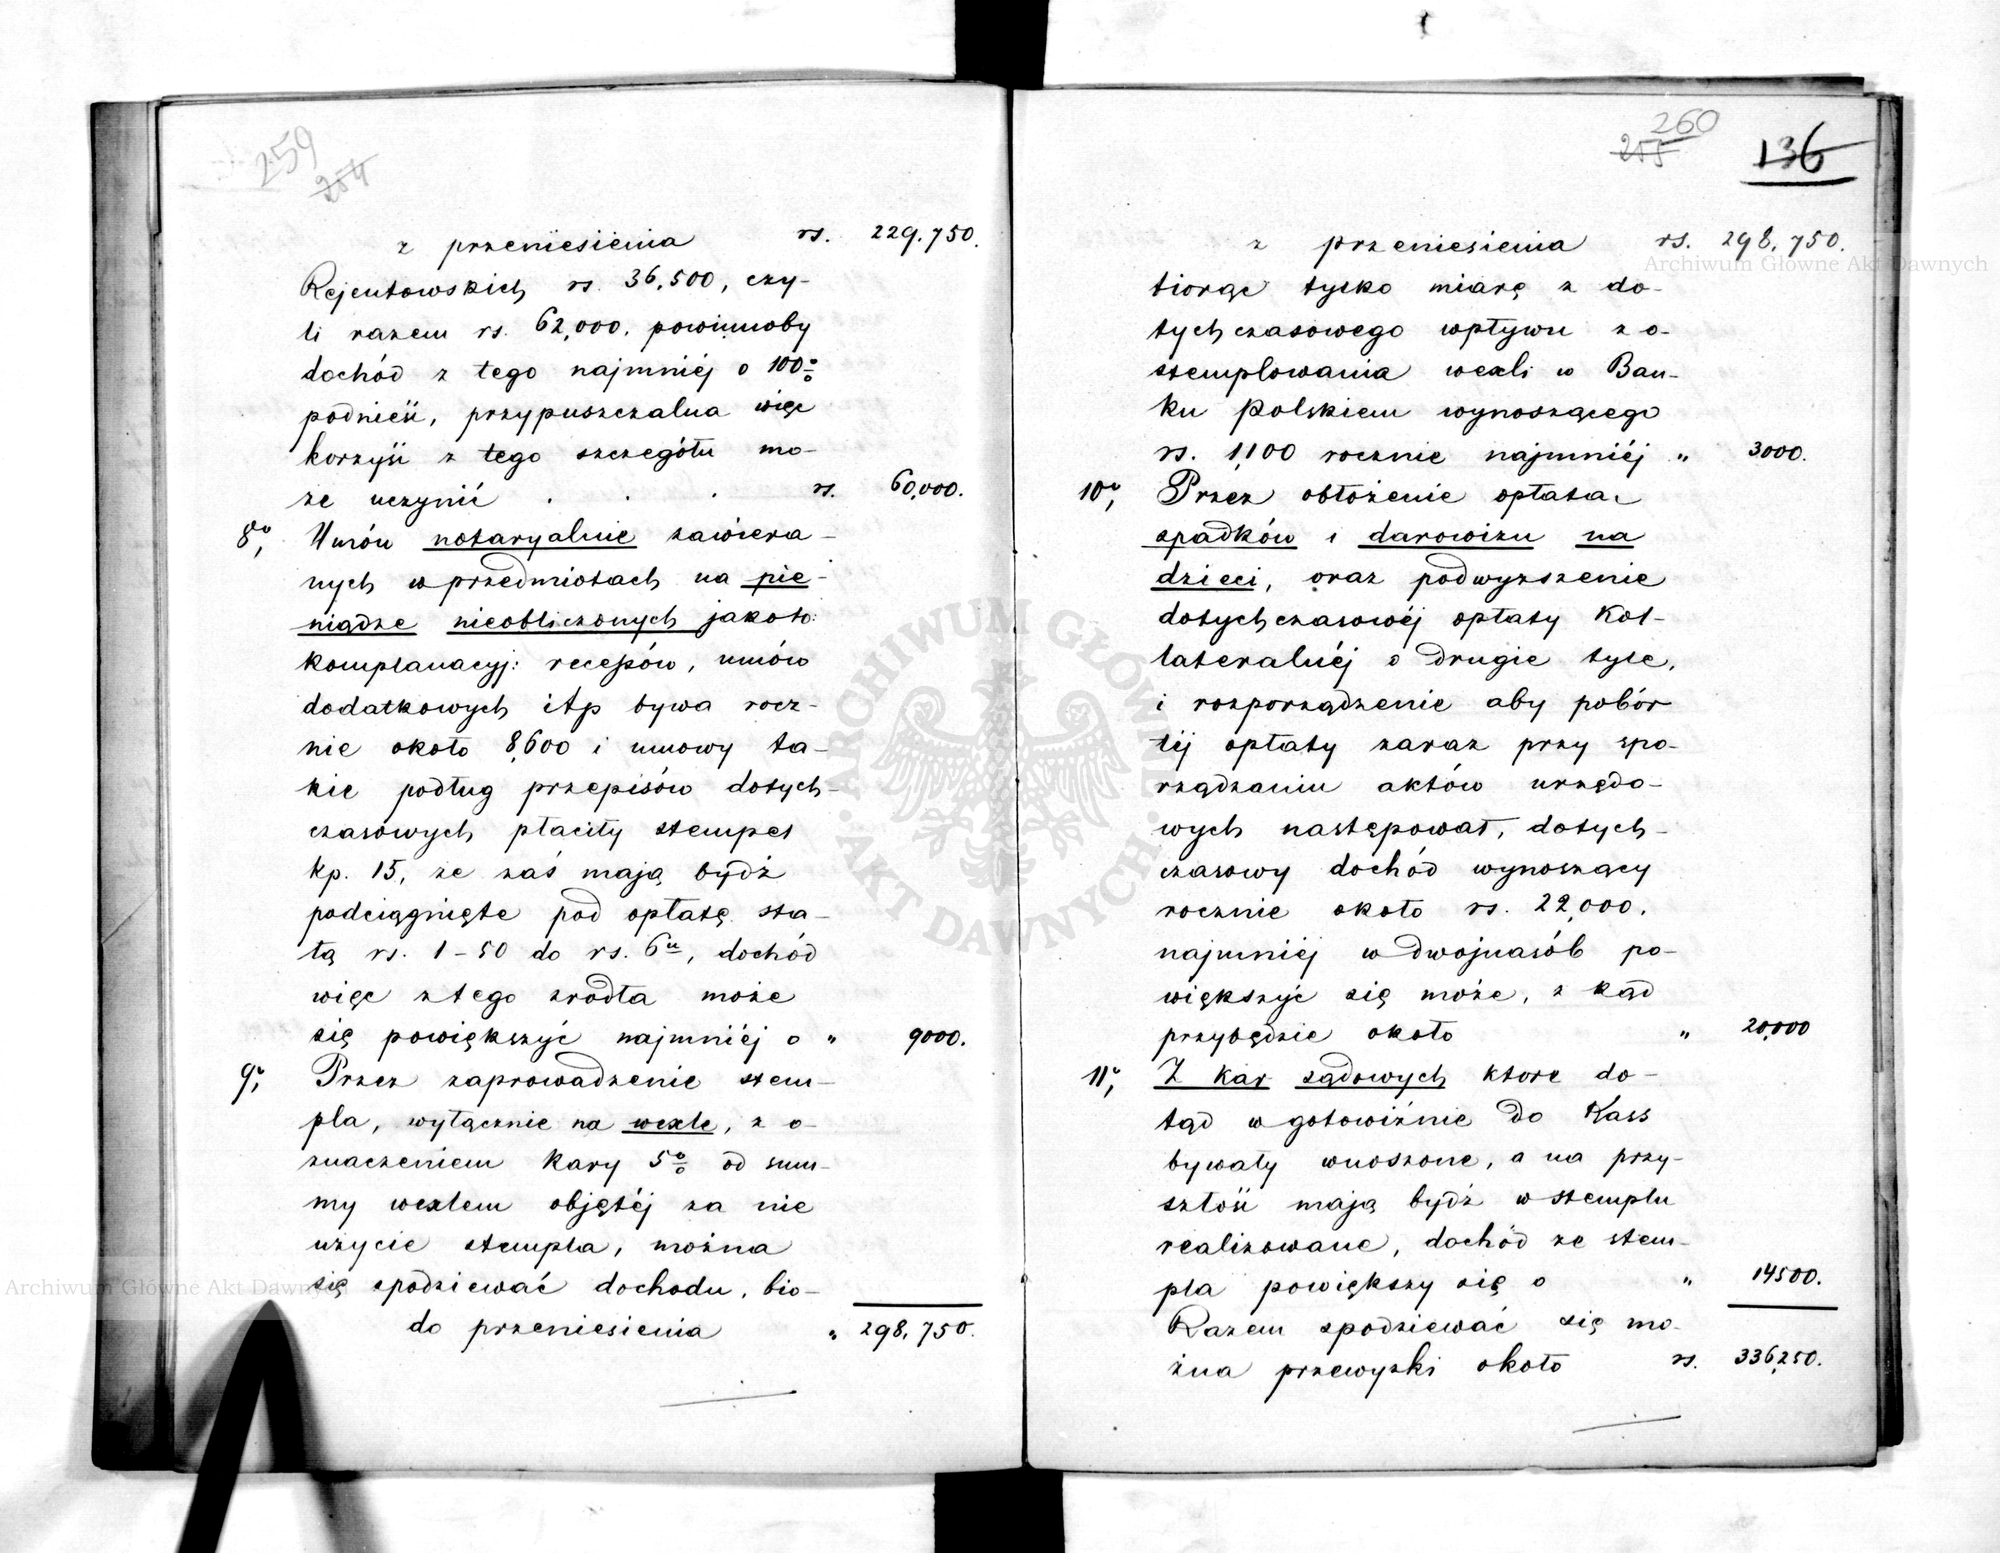 259
254
z przeniesienia rs. 229.750.
Rejentowskich rs. 36,500, czy-
li razem rs. 62,000. powinnoby
dochód z tego najmniéj o 100%
podnieść, przypuszczalna więc
korzyść z tego szczegółu mo-
że uczynić . . . rs. 60,000.
8o, Umów notaryalnie zawiera-
nych w przedmiotach na pie-
niądze nieobliczonych jakoto:
komplanacyj: recessów, umów
dodatkowych itp bywa rocz-
nie około 8,600 i umowy ta-
kie podług przepisów dotych-
czasowych płaciły stempel
kp. 15, że zaś mają bydź
podciągnięte pod opłatę sta-
łą rs. 1-50 do rs. 6, dochód
więc z tego zrodła może
się powiększyć najmniéj o " 9000.
9o, Przez zaprowadzenie stem-
pla, wyłącznie na wexle, z o-
znaczeniem kary 5% od sum-
my wexlem objętéj za nie
użycie stempla, można
się spodziewać dochodu, bio-
do przeniesienia " 298,750.
260
255
136
z przeniesienia rs. 298,750.
biorąc tylko miarę z do-
tychczasowego wpływu z o-
stemplowania wexli w Ban-
ku Polskiem wynoszącego
rs. 1,100 rocznie najmniéj " 3000.
10o, Przez obłożenie opłatą
spadków i darowizn na
dzieci, oraz podwyższenie
dotychczasowéj opłaty kol-
lateralnéj o drugie tyle,
i rozporządzenie aby pobór
téj opłaty zaraz przy spo-
rządzaniu aktów urzędo-
wych następował, dotych-
czasowy dochód wynoszący
rocznie około rs. 22,000.
najmniéj w dwójnasób po-
większyć się może, z kąd
przybędzie około " 20,000
11o, Z kar sądowych które do-
tąd w gotowiźnie do Kass
bywały wnoszone, a na przy-
szłość mają bydź w stemplu
realizowane, dochód ze stem-
pla powiększy się o " 14500.
Razem spodziewać się mo-
żna przewyżki około rs. 336,250.
Archiwum Główne Akt Dawnych
Archiwum Główne Akt Dawnych
· ARCHIWUM GŁÓWNE · AKT DAWNYCH